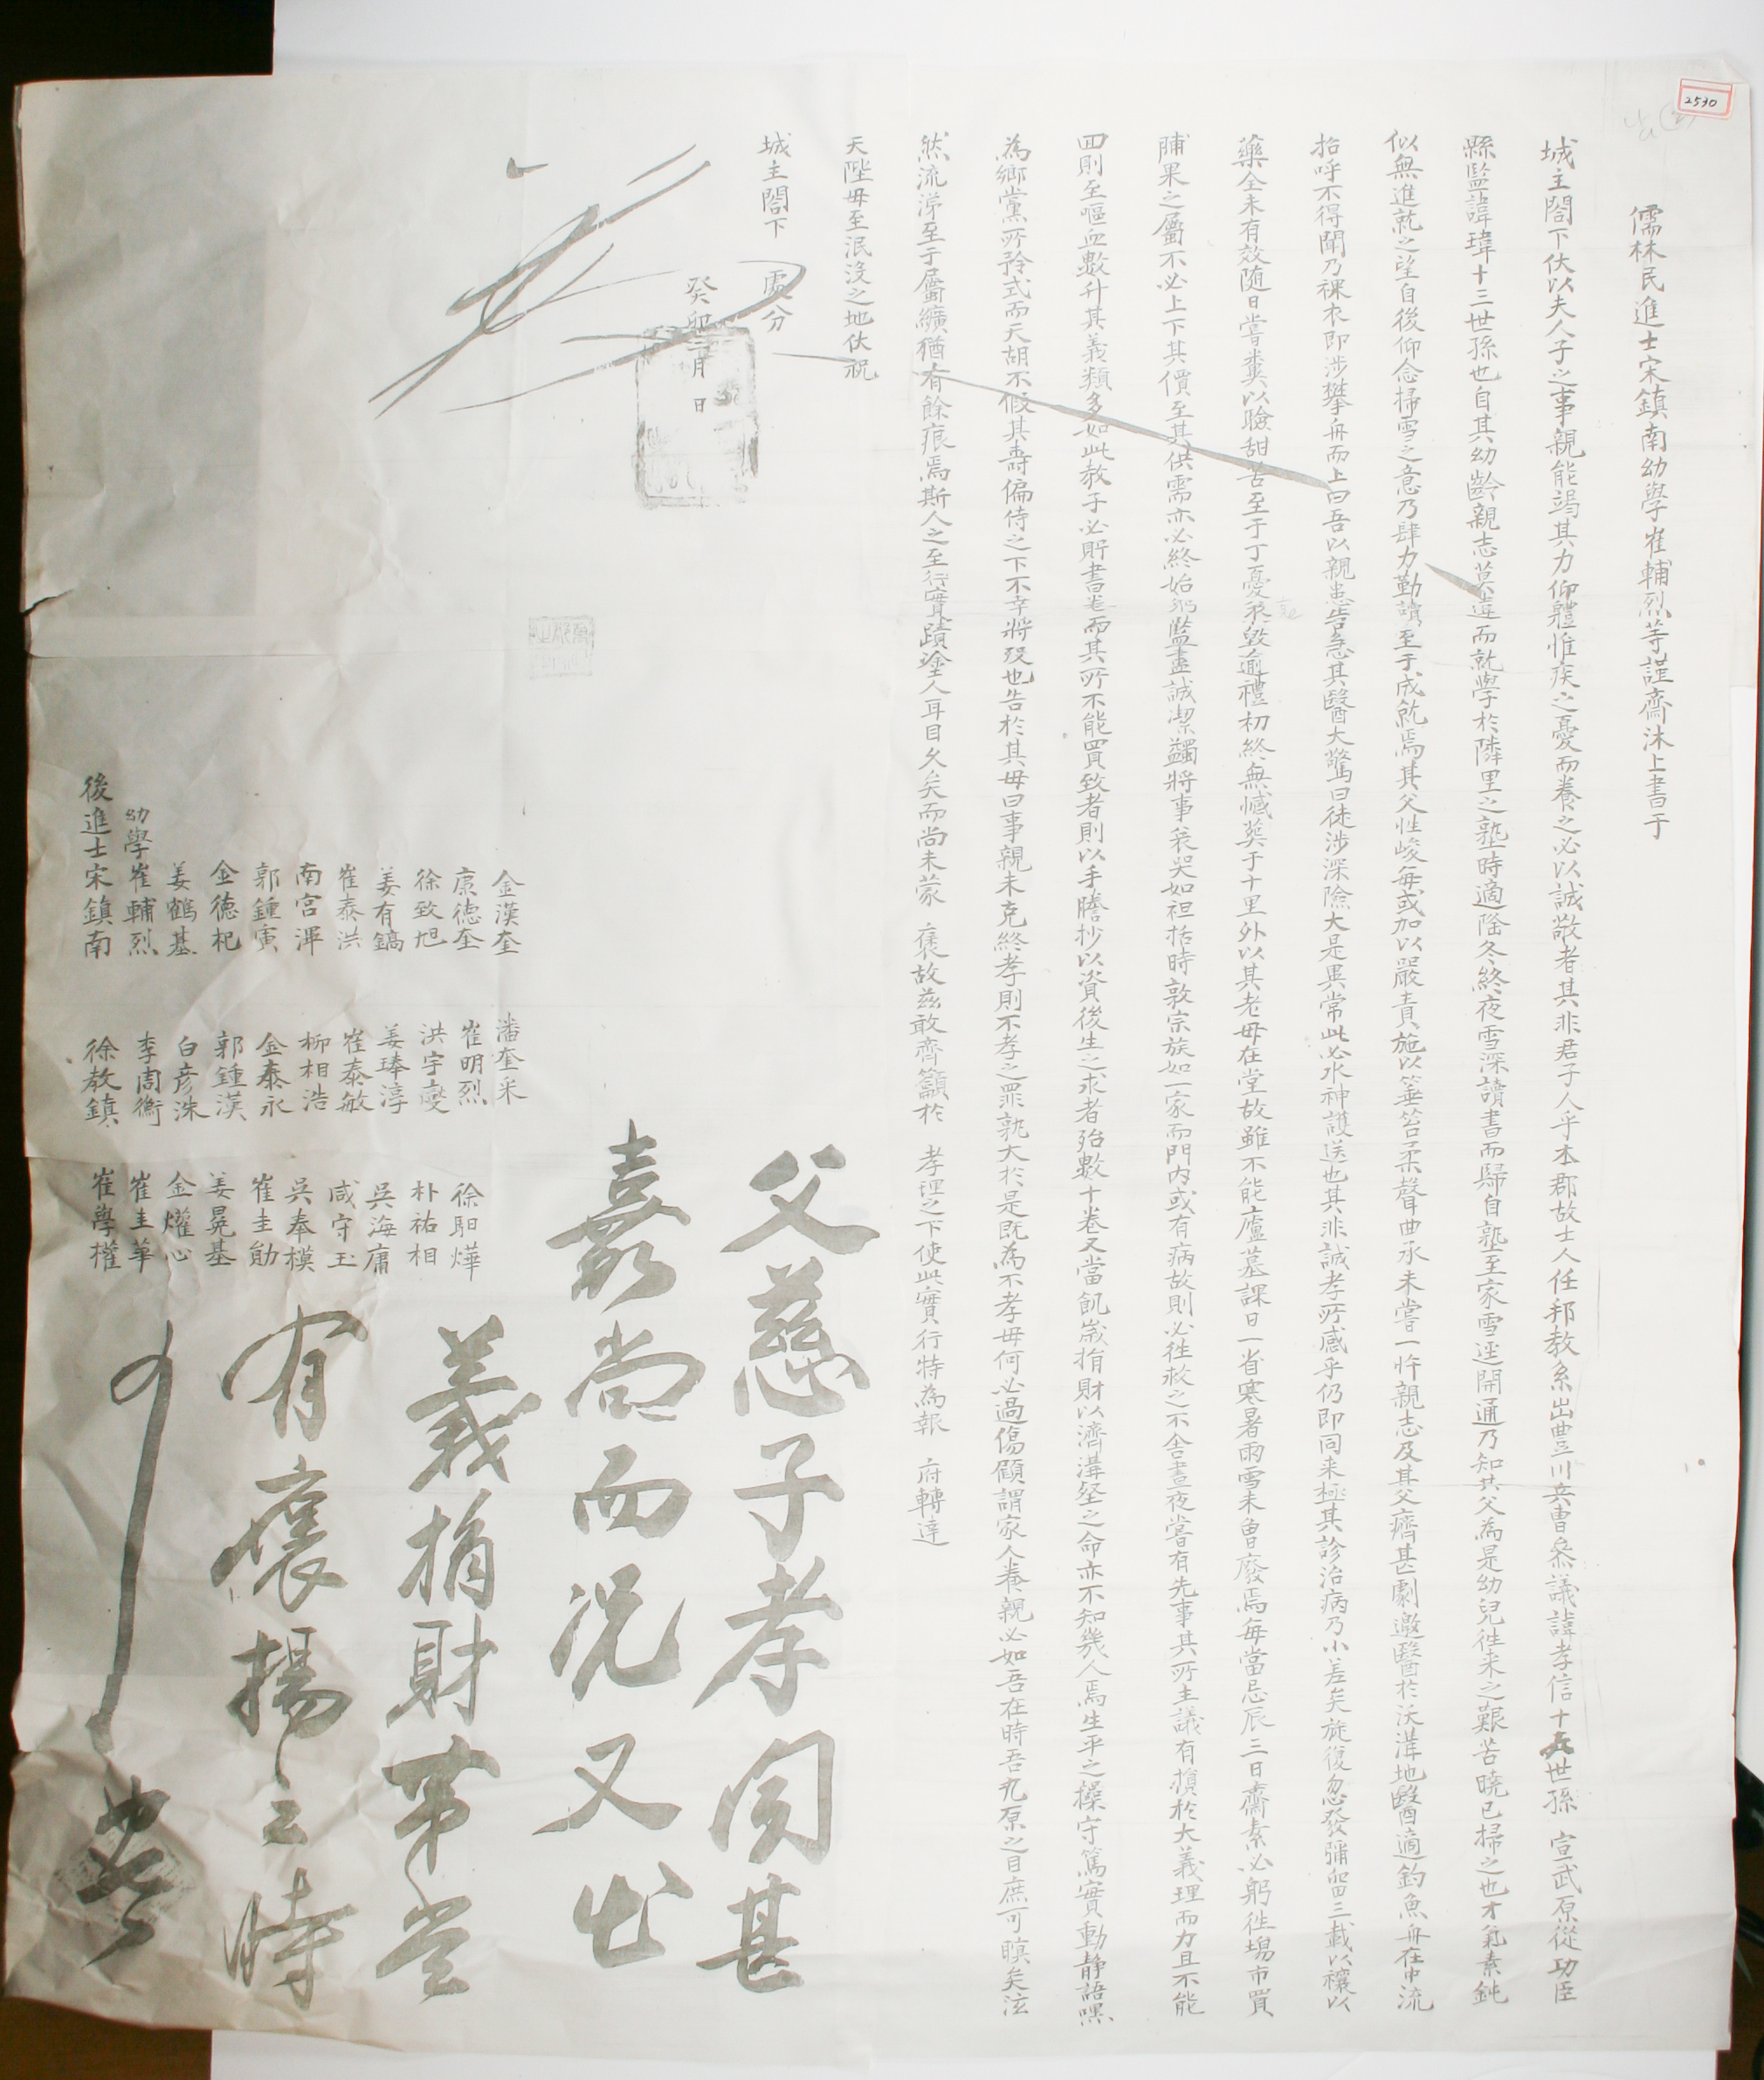 2530
儒林民進士宋鎮南幼學崔輔烈等謹齋沐上書于
城主閤下伏以夫人子之事親能竭其力仰軆惟疾之憂而養之必以誠敬者其非君子人乎本郡故士人任邦教系出豊川兵曹叅議諱孝信十五世孫 宣武原從功臣
縣監諱瑋十三世孫也自其幼齡親志莫違而就學於隣里之塾時適隆冬終夜雪深讀書而歸自塾至家雪逕開通乃知其父為是幼兒徃来之艱苦曉已掃之也才氣素鈍
似無進就之望自後仰念掃雪之意乃肆力勤讀至于成就焉其父性峻每或加以嚴責施以箠笞柔聲曲承未嘗一忤親志及其父癠甚劇邀醫於沃溝地醫適釣魚舟在中流
招呼不得聞乃裸衣即涉攀舟而上曰吾以親患告急其醫大驚曰徒涉深險大是異常此必水神護送也其非誠孝所感乎仍即同来極其診治病乃小差矣旋復忽發彌留三載以禳以
藥全未有效随日嘗糞以驗甜苦至于丁憂哀毀逾禮初終無憾葬于十里外以其老母在堂故雖不能廬墓課日一省寒暑雨雪未曾廢焉每當忌辰三日齋素必躬徃場市買
脯果之屬不必上下其價至其供需亦必終始躬監盡誠潔蠲將事哀哭如袒括時敦宗族如一家而門内或有病故則必徃救之不舍晝夜嘗有先事其所主議有損於大義理而力且不能
回則至嘔血數升其義類多如此教子必貯書卷而其所不能買致者則以手謄抄以資後生之求者殆數十卷又當飢歲捐財以濟溝壑之命亦不知幾人焉生平之操守篤實動静語嘿
為鄉黨所矜式而天胡不假其壽偏侍之下不幸將歿也告於其母曰事親未克終孝則不孝之罪孰大於是既為不孝母何必過傷顧謂家人養親必如吾在時吾九原之目庶可瞑矣泫
然流涕至于屬纊猶有餘痕焉斯人之至行實蹟塗人耳目久矣而尚未蒙 褒故茲敢齊籲於 孝理之下使此實行特為報 府轉達
天陛毋至泯沒之地伏祝
城主閤下 處分
癸卯二月 日
後進士宋鎮南 徐教鎮 崔學權
幼學崔輔烈 李周衡 崔圭華
姜鶴基 白彦洙 金燿心
金德杞 郭鍾漢 姜晃基
郭鍾寅 金泰永 崔圭勛
南宮渾 柳相浩 吳奉模
崔泰洪 崔泰敏 咸守玉
姜有鎬 姜琫淳 吳海庸
徐致旭 洪宇燮 朴祐相
康德奎 崔明烈 徐馹燁
金漢奎 潘奎采
父慈子孝固甚
嘉尚而況又出
義捐財事當
有褒揚之時